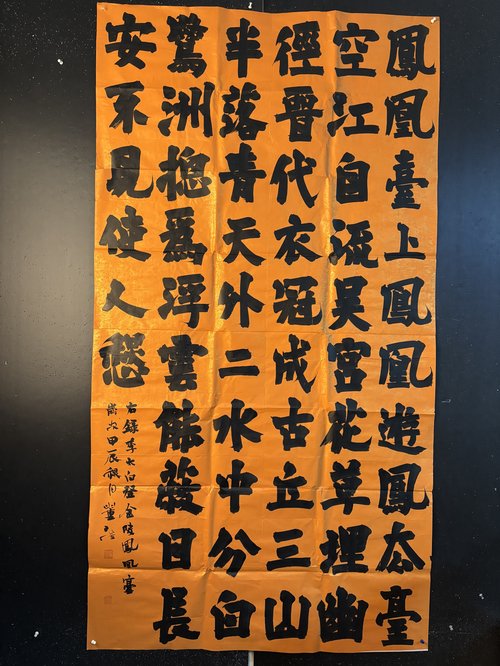 鳳凰臺上鳳凰遊鳳厺臺
空江自流吳宮花草埋幽
徑晉代衣冠成古丘三山
半落青天外二水中分白
鷺洲摠爲浮雲能蔽日長
安不見使人愁
右錄李太白登金陵鳳凰臺
歲次甲辰秋月